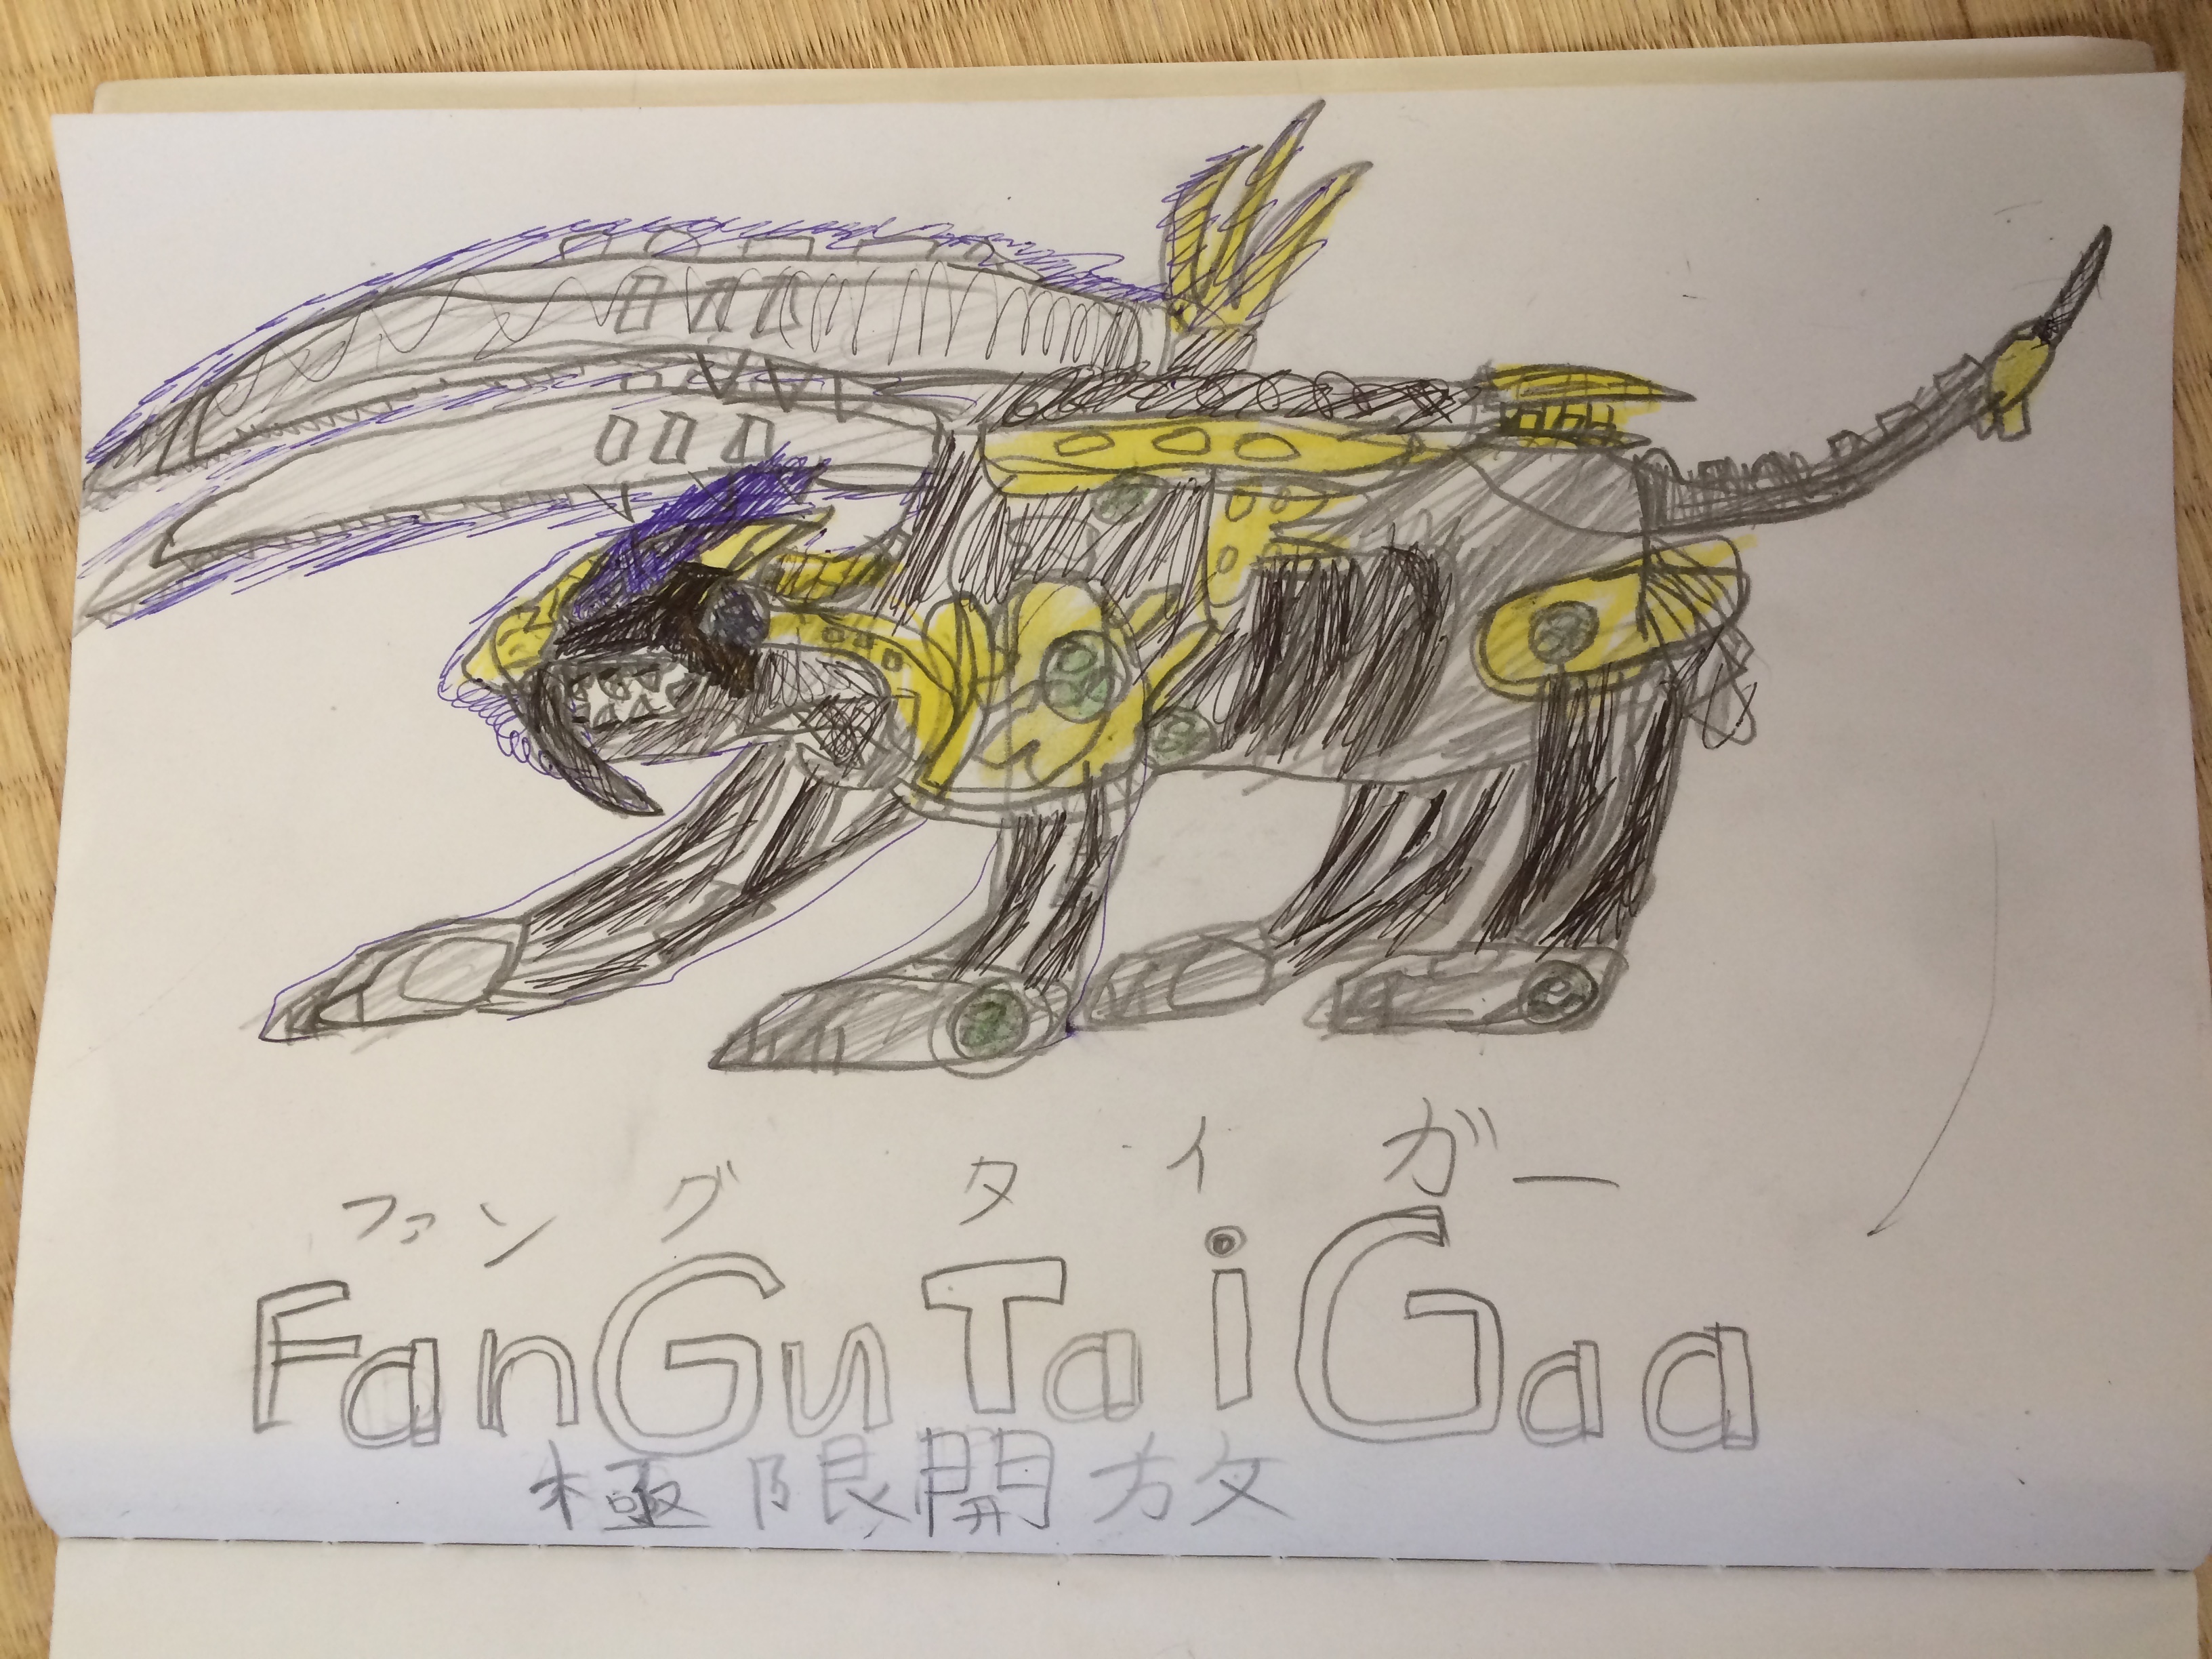 ファングタイガー
FanGuTaiGaa
極限開放